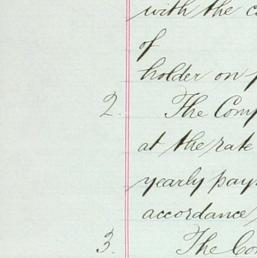 with the c
of
holder on p
2. The Comp
at the rate
yearly pay
accordance
3. The Co